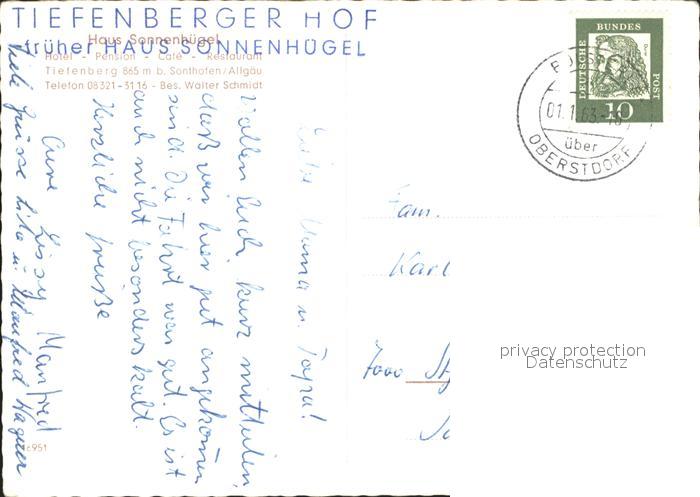 TIEFENBERGER HOF
Haus Sonnenhügel
früher HAUS SONNENHÜGEL
Hotel - Pension - Café - Restaurant
Tiefenberg 865 m b. Sonthofen/Allgäu
Telefon 08321-3116 - Bes. Walter Schmidt
Liebe Mama u. Papa!
Wollen Euch kurz mitteilen,
daß wir hier gut angekommen
sind. Die Fahrt war gut. Es ist
auch nicht besonders kalt.
Herzliche Grüße
Eure Lissy Manfred
Viele Grüsse Manfred Wagner
951
DEUTSCHE
BUNDES
POST
Dürer
10
01.1.63.-18
über
OBERSTDORF
Fam.
Karl
7000
privacy protection
Datenschutz